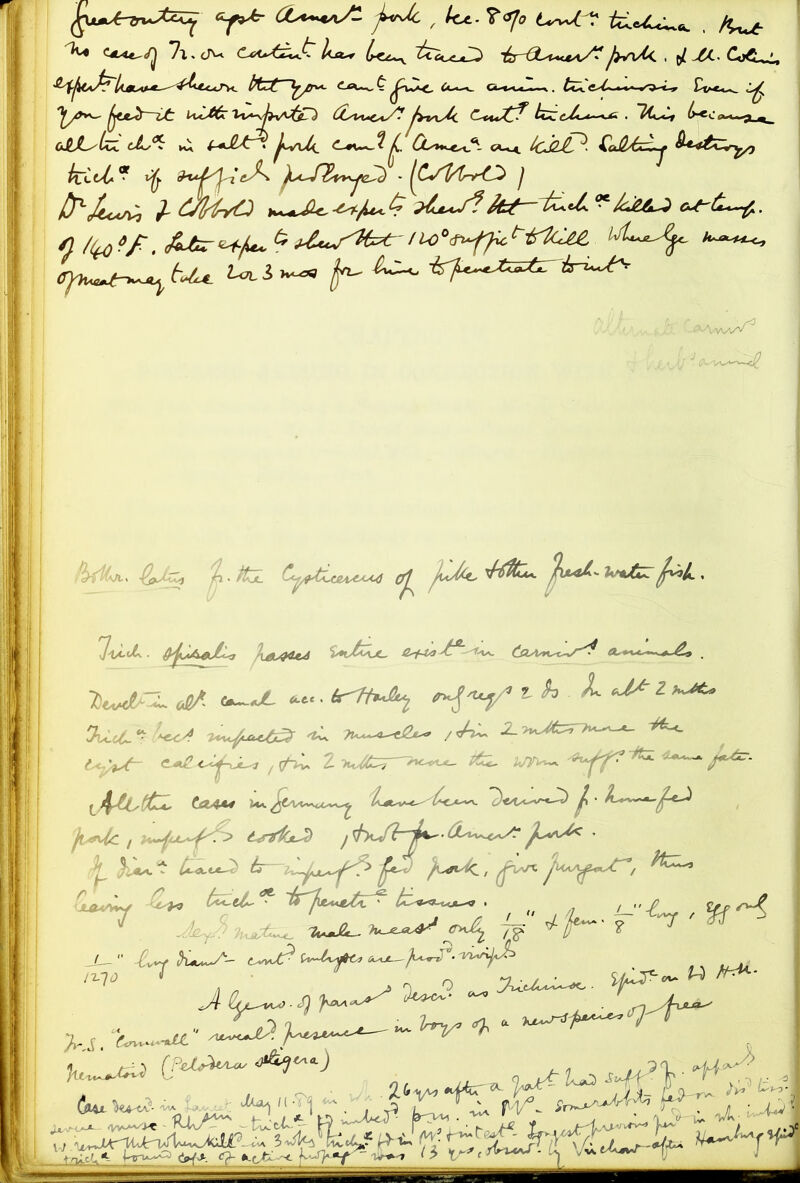 Great outcry agst Amern pork, bec. 8 o/o contn trichina. But
no case of Tr. on contint has been traced to Amern pork. & M. Colin's
experts have shewn tht you cant give an anim. trichinosis even if
you feed it with imported Amern pork contg trichina. This because
all trichæ in saltd pork comg f. Amera are killd. Salting destroys
trichæ if sufficly prolonged. (Cobbold)
Dr Lewis & Cobbold made experts shewg tht trichæ killed at temp.
of 140° F. Later experts shew tht 120° suffict to kill. Where lge masses
of meat may take 2 or 3 mos for brine to penetrate to intr
alternate carnivs
& herbs animal
Bothr. latus fr. the Cysticercus of pike & other fresh-water fish.
Trich. spiralis passes entire existe in carnivs animals.
Develt in aly. canal acc. to Harley only reqs 2 ds. In abt 2 mths
Tricha becs impacted in muscles, & in 2 mths more the
cyst calcifies, & in 2 mths more the worm suffs the same fate.
All the cases in Germany have been derived f. home fed
pork, imperfly cooked, & not fr. Amern pork.
If diarra traced to imperfly fed pork, give purgat, thus
leaving less trichæ to penetre tissues.
Sexly mature male measd only 1/18" & fem. 1/8" long, Egg only
1/1270" long diamr - contd embryos are prodd viviply
A lge no. of paras descrd as Trichinæ. Epide on bd H.M.
Tr.S. "Cornwall" reveald presence in boys of a new species of free
Nematoid (Pelodera setigera)
Case descrd in Lancet May 11.89 in wh. 26 yrs after a patt had suffd fr. apparly
severe musc. Rhsm trichæ fd imbedd p.m. in Ms - some rabbits fed on dis tiss.
w. result tht when killd in 3 wks trichæ fd in Ms & intests Longest previous perd in wh. imbedd
tricha found cape of active propagn was 13 yrs, observd by Virchow after Hamburg epide